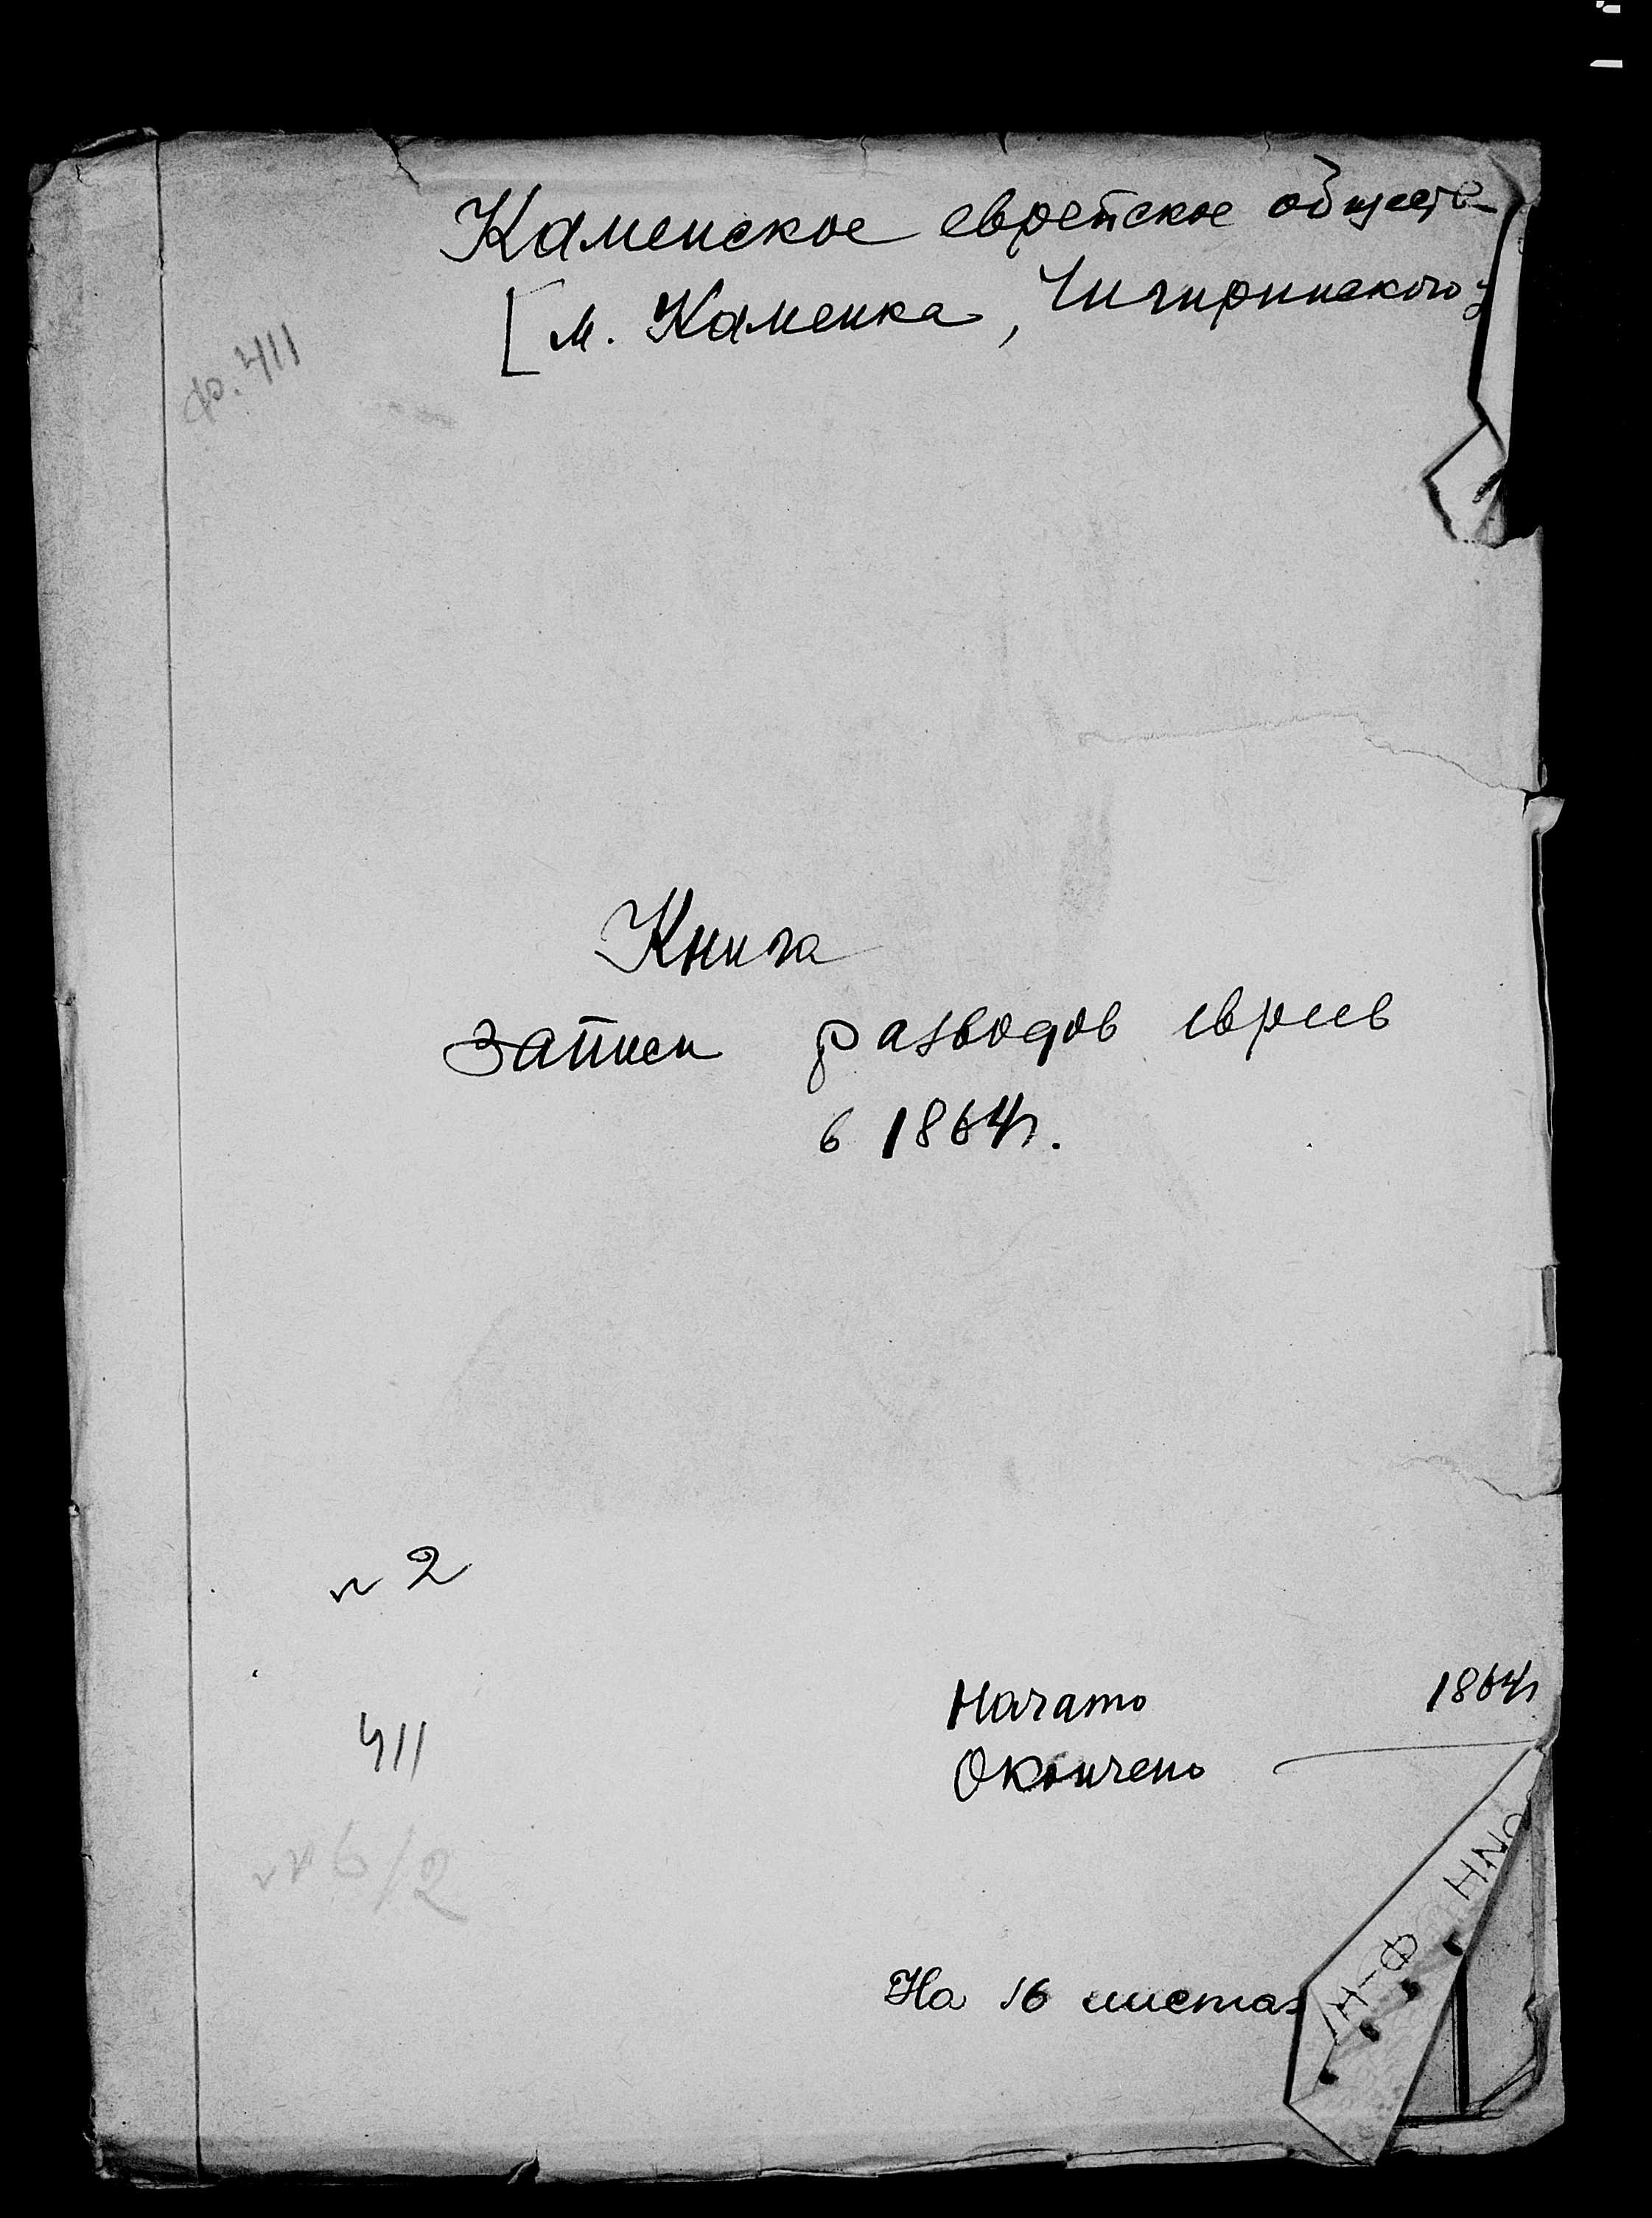 Каменское еврейское общест-
[м. Каменка, Чигиринского у
ф. 411
Книга
записи разводов евреев
в 1864г.
n 2
411
6/2
Начато 1864г
Окончено
На 16 листах